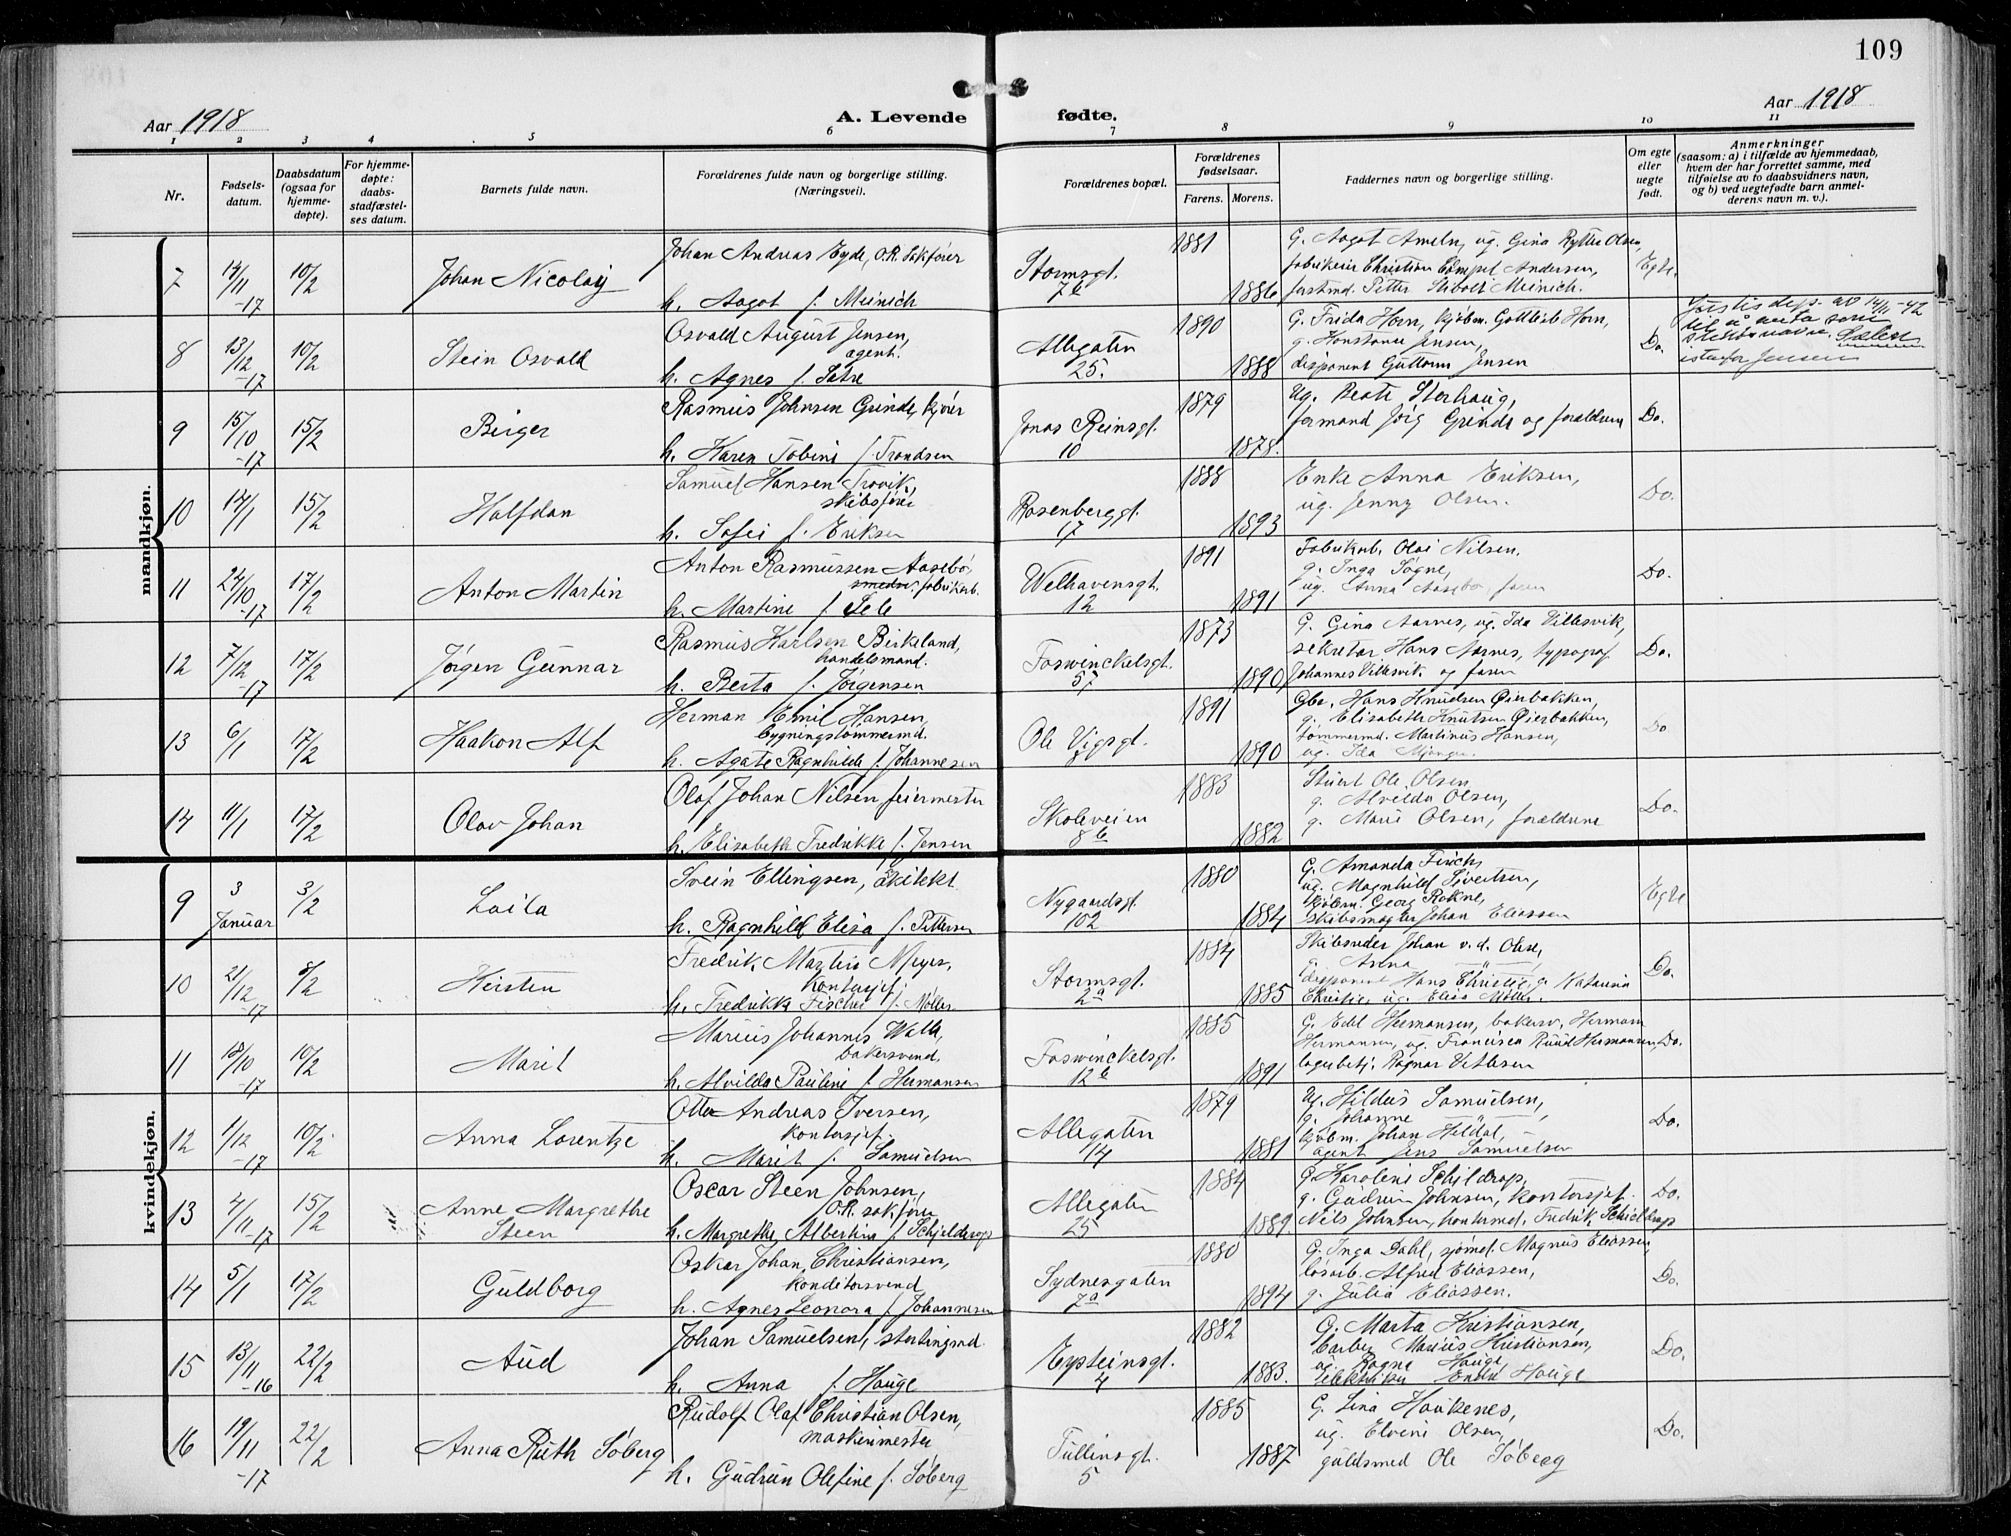 109
Aar 1918
A. Levende
fødte.
Aar 1918
1 2 3 4 5 6 7 8 9 10 11
Nr.
Fødsels-
datum.
Daabsdatum
(ogsaa for
hjemme-
døpte).
For hjemme-
døpte:
daabs-
stadfæstel-
ses datum.
Barnets fulde navn.
Forældrenes fulde navn og borgerlige stilling.
(Næringsvei).
Forældrenes bopæl.
Forældrenes
fødselsaar.
Farens. Morens.
Faddernes navn og borgerlige stilling.
Om egte
eller
uegte
født.
Anmerkninger
(saasom: a) i tilfælde av hjemmedaab,
hvem der har forrettet samme, med
tilføielse av to daabsvidners navn,
og b) ved uegtefødte barn anmel-
derens navn m. v.).
mandkjøn.
7 14/11 -17 10/2 Johan Nicolay
Johan Andreas Eyde, O.R. sakfører
h. Aagot f. Meinich
Stormsgt. 7b
1881 1886
G. Aagot Ameln, ug. Gina Rytter Olsen,
fabrikeier Christian Andersen,
forstmd. Petter Stibolt Meinich.
Egte.
8 13/12 -17 10/2 Stein Osvald
Osvald August Jensen,
agent.
h. Agnes f. Sætre
Allegaten 25.
1890 1888
G. Frida Horn, kjøbm. Gottlieb Horn,
g. Konstance Jensen,
disponent Guttorm Jensen
Do.
Justisdep. av 14/11-42
til å anta som
slektsnavn Sælen
istedfor Jensen
9 15/10 -17 15/2 Birger
Rasmus Johnsen Grinde, kjører
h. Karen Tobine f. Trondsen
Jonas Reinsgt. 10
1879 1878.
Ug. Beate Storhaug,
formand Jørg Grinde og forældrene
Do.
10 14/1 15/2 Halfdan
Samuel Hansen Trovik,
skibsfører
h. Sofei f. Eriksen
Rosenberggt. 17
1888 1893
Enke Anna Eriksen,
ug. Jenny Olsen.
Do.
11 24/10 -17 17/2 Anton Martin
Anton Rasmussen Aasebø,
smedsv. fabrikarb.
h. Martine f. Sele
Welhavensgt. 12
1891 1891
Fabrikarb. Olai Nilsen.
g. Inga Søgne,
ug. Anna Aasebø, faren
Do.
12 7/12 -17 17/2 Jørgen Gunnar
Rasmus Karlsen Birkeland,
handelsmand.
h. Berta f. Jørgensen
Foswinckelsgt. 57
1873 1890
G. Gina Aarnes, ug. Ida Villesvik,
sekretær Hans Aarnes, typograf
Johannes Villesvik og faren
Do.
13 6/1 17/2 Haakon Alf
Herman Emil Hansen,
bygningstømmermd.
h. Agate Ragnhilde f. Johannesen
Ole Vigsgt.
1891 1890
Gbr. Hans Knudsen Øierbakken,
g. Elisabeth Knutsen Øierbakken,
tømmermd. Martinus Hansen,
ug. Ida
Do
14 11/1 17/2 Olav Johan
Olaf Johan Nilsen feiermester
h. Elisabeth Fredrikke f. Jensen
Skoleveien 8b
1883 1882
Stuert Ole Olsen,
g. Alvilda Olsen,
g. Marie Olsen, forældrene
Do.
kvindekjøn.
9 3 Januar 3/2 Laila
Svein Ellingsen, arkitekt
h. Ragnhild Elisa f. Pettersen
Nygaardsgt. 102
1880 1884
G. Amanda Finch,
ug. Magnhild Sivertsen,
kjøbm. Georg Rokne,
skibsmægler Johan Eliassen
Egte
10 21/12 -17 8/2 Kirsten
Fredrik Martin Meyer,
kontorsjef
h. Fredrikke Fischer f. Møller
Stormsgt. 2a
1884 1885
Skibsreder Johan v. d. Ohe,
g. Anna —"—,
disponent Hans Christie, g. Katarina
Christie, ug. Elisa Møller.
Do.
11 18/10 -17 10/2 Marit
Marius Johannes Walle,
bakersvend.
h. Alvilda Pauline f. Hermansen
Foswinckelsgt. 12b
1885 1891
G. Edel Hermansen, bakersv. Herman
Hermansen, ug. Francisca Ruud Hermansen,
lagerbetj. Ragnar Vetlesen
Do.
12 1/12 -17 10/2 Anna Lorentze
Otto Andreas Iversen,
kontorsjef.
h. Marit f. Samuelsen
Allegaten 14
1879 1881
Ug. Hildur Samuelsen,
g. Johanne —"—,
kjøbm. Johan Heldal,
agent Jens Samuelsen
Do.
13 4/11 -17 15/2 Anne Margrethe
Steen
Oscar Steen Johnsen,
O.R. sakfører
h. Margrethe Albertina f. Schjelderup
Allegaten 25
1884 1889.
G. Karoline Schjeldrop,
g. Gudrun Johnsen, kontorsjef
Nils Johnsen, kontormd. Fredrik Schieldrop
Do.
14 5/1 17/2 Guldborg
Oskar Johan Christiansen,
konditorsvend
h. Agnes Leonora f. Johannesen
Sydnesgaten 7a
1880 1894
G. Inga Dahl, sjømd. Magnus Eliassen,
løsarb. Alfred Eliassen,
g. Julia Eliassen.
Do.
15 13/11 -16 22/2 Aud
Johan Samuelsen, stortingsmd.
h. Anna f. Hauge
Eysteinsgt. 4
1882 1883.
G. Marta Kristiansen,
barber Marius Kristiansen,
ug. Ragna Hauge,
elektriker Endre Hauge
Do.
16 19/11 -17 22/2 Anna Ruth Søberg
Rudolf Olaf Christian Olsen,
maskinmester
h. Gudrun Olefine f. Søberg
Tullinsgt. 5
1885 1887
G. Lina Haukenes,
ug. Elvine Olsen,
guldsmed Ole Søberg
Do.